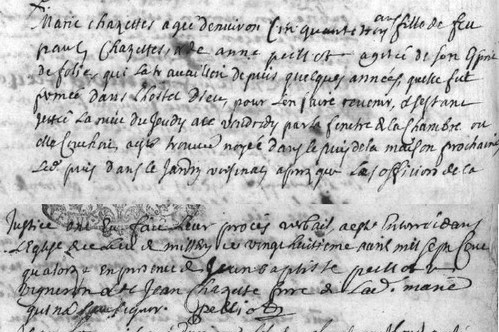 Marie Chazettes agee denviron Cinquante trois ans fille de feu
pauls Chazettes & de anne pellot agitée de son Esprit
de folie, qui la travailloit depuis quelques années, quelle fut
fermée dans l'hostel Dieu, pour l'en faire revenir, & sestant
jettée La nuit du Jeudy au vendredy par la fenetre de la Chambre ou
elle Couchoit, a esté trouvée noyée dans le puis de la maison prochaine
Led. puis dans le Jardin voisinat, apres que Les officiers de la
Justice ont Eu faict Leur proces verbail, a esté Enterrée dans
L'Eglise de ce Lieu de ce vingt huitieme avril mil sept Cent
quatorze en presence de Jean baptiste pellot
vigneron & de Jean Chazette frere de Lad. marie
qui na sceu signer. pellot